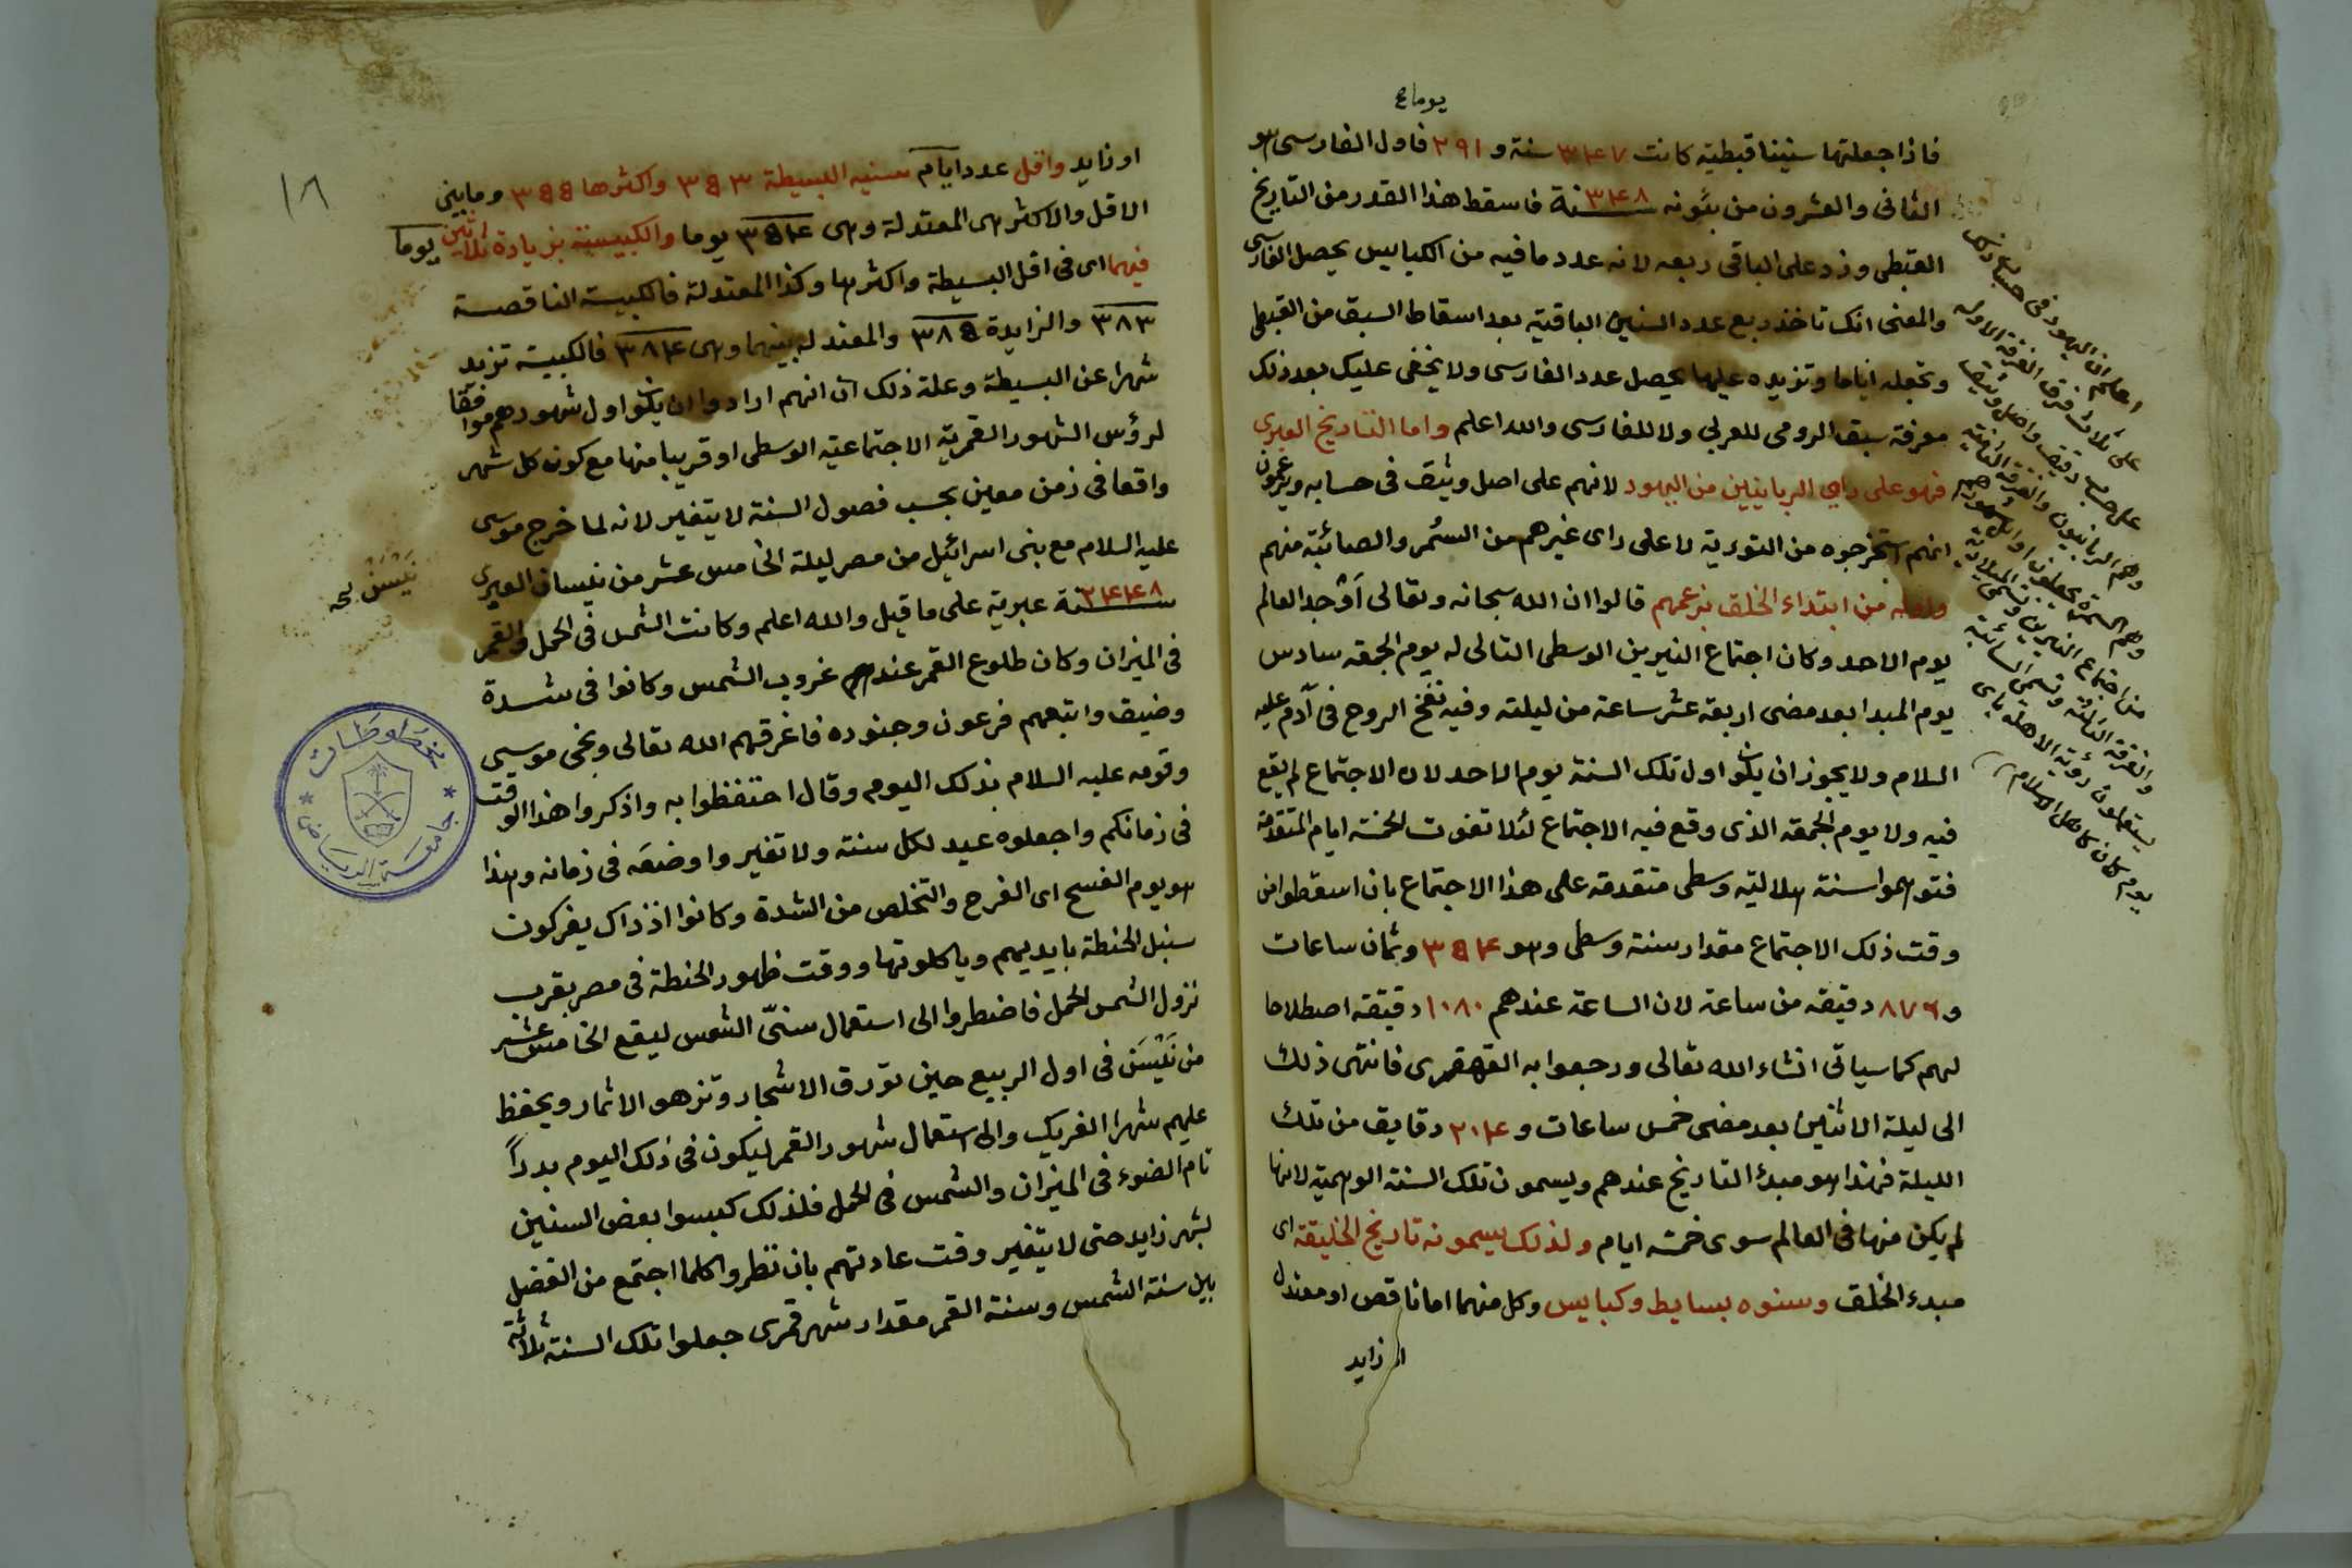 يوما ع
فاذا جعلتها سنينا قبطية كانت ٣٤٧ سنة و ٢٩١ فاول الفارسى هو
الثانى والعشرون من بئونه سنة ٣٤٨ فاسقط هذا القدر من التاريخ
القبطى وزد على الباقى ربعه لانه عدد ما فيه من الكبايس يحصل الفارسى
والمعنى انك تاخذ ربع عدد السنين الباقية بعد اسقاط السبق من القبطى
وتجعله اياما وتزيده عليها يحصل عدد الفارسى ولا يخفى عليك بعد ذلك
معرفة سبق الرومى للعربى ولا للفارسى والله اعلم واما التاريخ العبرى
فهو على راى الربانيين من اليهود لانهم على اصل وثيق فى حسابه ويزعمون
انهم استخرجوه من التورية لا على راى غيرهم من السُمر والصائبة منهم
واوله من ابتداء الخلق بزعمهم قالوا ان الله سبحانه وتعالى اَوْجد العالم
يوم الاحد وكان اجتماع النيرين الوسطى التالى له يوم الجمعه سادس
يوم المبدا بعد مضى اربعة عشر ساعة من ليلته وفيه نفخ الروح فى آدم عليه
السلام ولا يجوز ان يكون اول تلك السنة يوم الاحد لان الاجتماع لم يقع
فيه ولا يوم الجمعه الذى وقع فيه الاجتماع لئلا تفوت الخمسة ايام المتقدمة
فتوهموا سنة هلالية وسطى متقدمة على هذا الاجتماع بان اسقطوا من
وقت ذلك الاجتماع مقدار سنة وسطى وهو ٣٥٤ وثمان ساعات
و ٨٧٦ دقيقه من ساعة لان الساعة عندهم ١٠٨٠ دقيقة اصطلاحا
لهم كما سياتى انشاء الله تعالى ورجعوا به القهقرى فانتهى ذلك
الى ليلة الاثنين بعد مضى خمس ساعات و ٢٠٤ دقايق من تلك
الليلة فهذا هو مبدؤ التاريخ عندهم ويسمون تلك السنة الوهمية لانها
لم يكن منها فى العالم سوى خمسه ايام ولذلك يسمونه تاريخ الخليقة اى
مبدء الخلق وسنوه بسايط وكبايس وكل منهما اما ناقص او معتدل
او زايد
اعلم ان اليهود فى حساب
على ثلاث فرق الفرقة الاولى
على حساب دقيق واصل وثيق
وهم الربانيون والفرقة الثانية
وهم السمرة يجعلون اوائل شهورهم
من اجتماع النيرين
والفرقة الثالثة وتسمى الصائبة
يستعملون رؤية الاهلة باى
يوم كان كاهل الاسلام
١٨
او زايد واقل عدد ايام سنيه البسيطة ٣٥٣ واكثرها ٣٥٥ وما بين
الاقل والاكثر هى المعتدلة وهى ٣٥٤ يوما والكبيسة بزيادة ثلاثين يوما
فيهما اى فى اقل البسيطة واكثرها وكذا المعتدلة فالكبيسة الناقصة
٣٨٣ والزايدة ٣٨٥ والمعتدله بينهما وهى ٣٨٤ فالكبيسة تزيد
شهرا عن البسيطة وعلة ذلك ان انهم ارادوا ان يكون اول شهورهم موافقا
لرؤس الشهور القمرية الاجتماعية الوسطى او قريبا منها مع كون كل شهر
واقعا فى زمن معين بحسب فصول السنة لا يتغير لانه لما خرج موسى
عليه السلام مع بنى اسرائيل من مصر ليلة الخامس عشر من نيسان العبرى
سنة ٢٤٤٨ عبرية على ما قيل والله اعلم وكانت الشمس فى الحمل والقمر
فى الميزان وكان طلوع القمر عند غروب الشمس وكانوا فى شدة
وضيق واتبعهم فرعون وجنوده فاغرقهم الله تعالى ونجى موسى
وقومه عليه السلام بذلك اليوم وقال احتفظوا به واذكروا هذا الوقت
فى زمانكم واجعلوه عيد لكل سنة ولا تغيروا وضعه فى زمانه وهذا
هو يوم الفسح اى الفرح والتخلص من الشدة وكانوا اذ ذاك يفركون
سنبل الحنطة بايديهم وياكلونها ووقت ظهور الحنطة فى مصر بقرب
نزول الشمس الحمل فاضطروا الى استعمال سنىّ الشمس ليقع الخامس عشر
من نَيْسَن فى اول الربيع حين تورق الاشجار وتزهو الاثمار ويحفظ
عليهم شهر الفريك والى استعمال شهور القمر ليكون فى ذلك اليوم بدراً
تام الضوء فى الميزان والشمس فى الحمل فلذلك كبسوا بعض السنين
بشهر زايد حتى لا يتغير وقت عادتهم بان نظروا كلما اجتمع من الفضل
بين سنة الشمس وسنة القمر مقدار شهر قمرى جعلوا تلك السنة ثلاثة
نَيْسَن
مخطوطات
جامعة الرياض